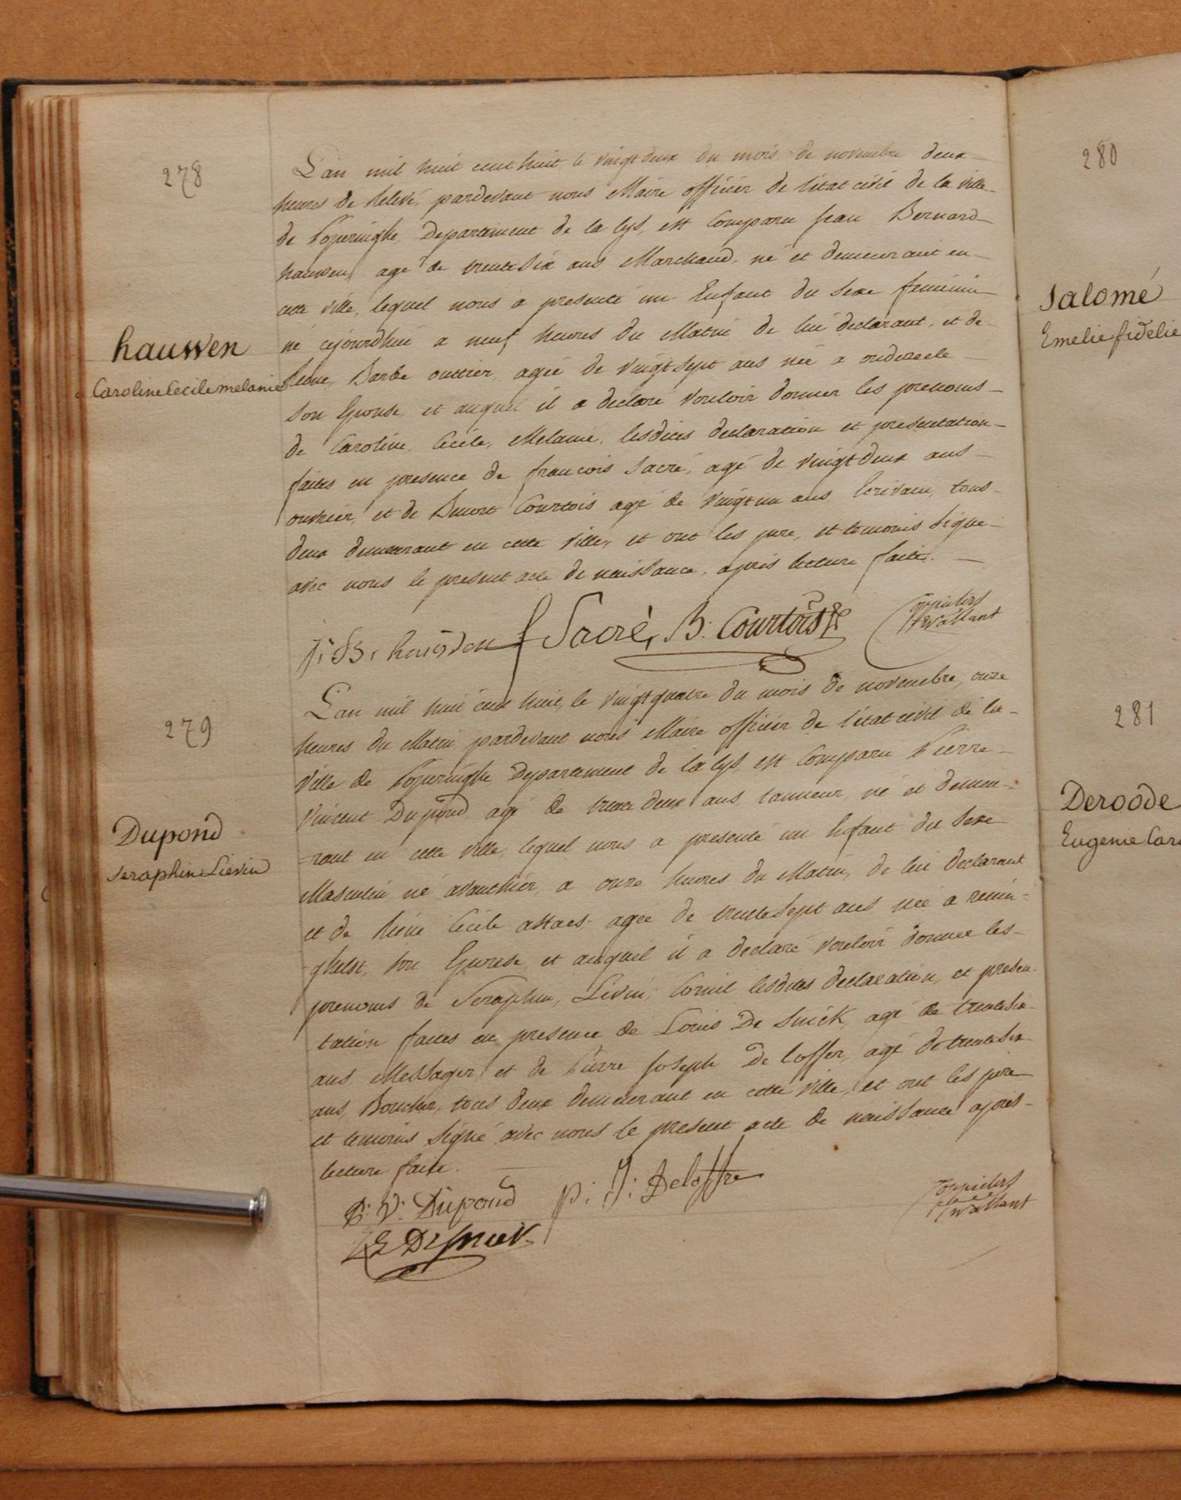 278
hauwen
Caroline Cecile melanie
L'an mil huit cent huit le vingt deux du mois de novembre deux
heures de relevé, pardevant nous Maire officier de l'état civil de la ville
de Poperinghe, Departement de la Lys, est comparu Jean Bernard
hauwen, agé de trente six ans Marchand, né et demeurant en
cette ville, lequel nous a presenté un Enfant du sexe feminin
né cejourdhui a neuf heures du Matin de lui declarant, et de
Barbe agée de vingt sept ans née a
son Epouse, et auquel il a declaré vouloir donner les prenoms
de Caroline, Cecile, Melanie, lesdites declaration et presentation
faites en presence de francois Sacré, agé de vingt deux ans
ouvrier, et de Courtois agé de vingt un ans Ecrivain, tous
deux demeurant en cette ville, et ont les pere, et temoins signé
avec nous le present acte de naissance, apres lecture faite.
Sacré, B. Courtois
279
Dupond
Seraphin Lievin
L'an mil huit cent huit, le vingt quatre du mois de novembre, onze
heures du Matin pardevant nous Maire officier de l'état civil de la
ville de Poperinghe Departement de la Lys, est comparu Pierre
Vincent Dupond agé de trente deux ans, tanneur, né et demeu-
=rant en cette ville lequel nous a presenté un Enfant du sexe
Masculin né avanthier, a onze heures du Matin, de lui declarant
et de Cecile agée de trente sept ans née a renin-
-ghelst, son Epouse, et auquel il a declaré vouloir donner les
prenoms de Seraphin, Livin, Cornil lesdites declaration, et presen-
tation faites en presence de Louis De Snick, agé de trente six
ans Messager, et de Pierre Joseph De loffer, agé de trente six
ans, Boucher, tous deux demeurant en cette ville, et ont les pere
et temoins signé avec nous le present acte de naissance apres
lecture faite.
P: V: Dupond P: J: Deloffre
280
Salomé
Emelie fidelie
281
Deroode
Eugenie Car